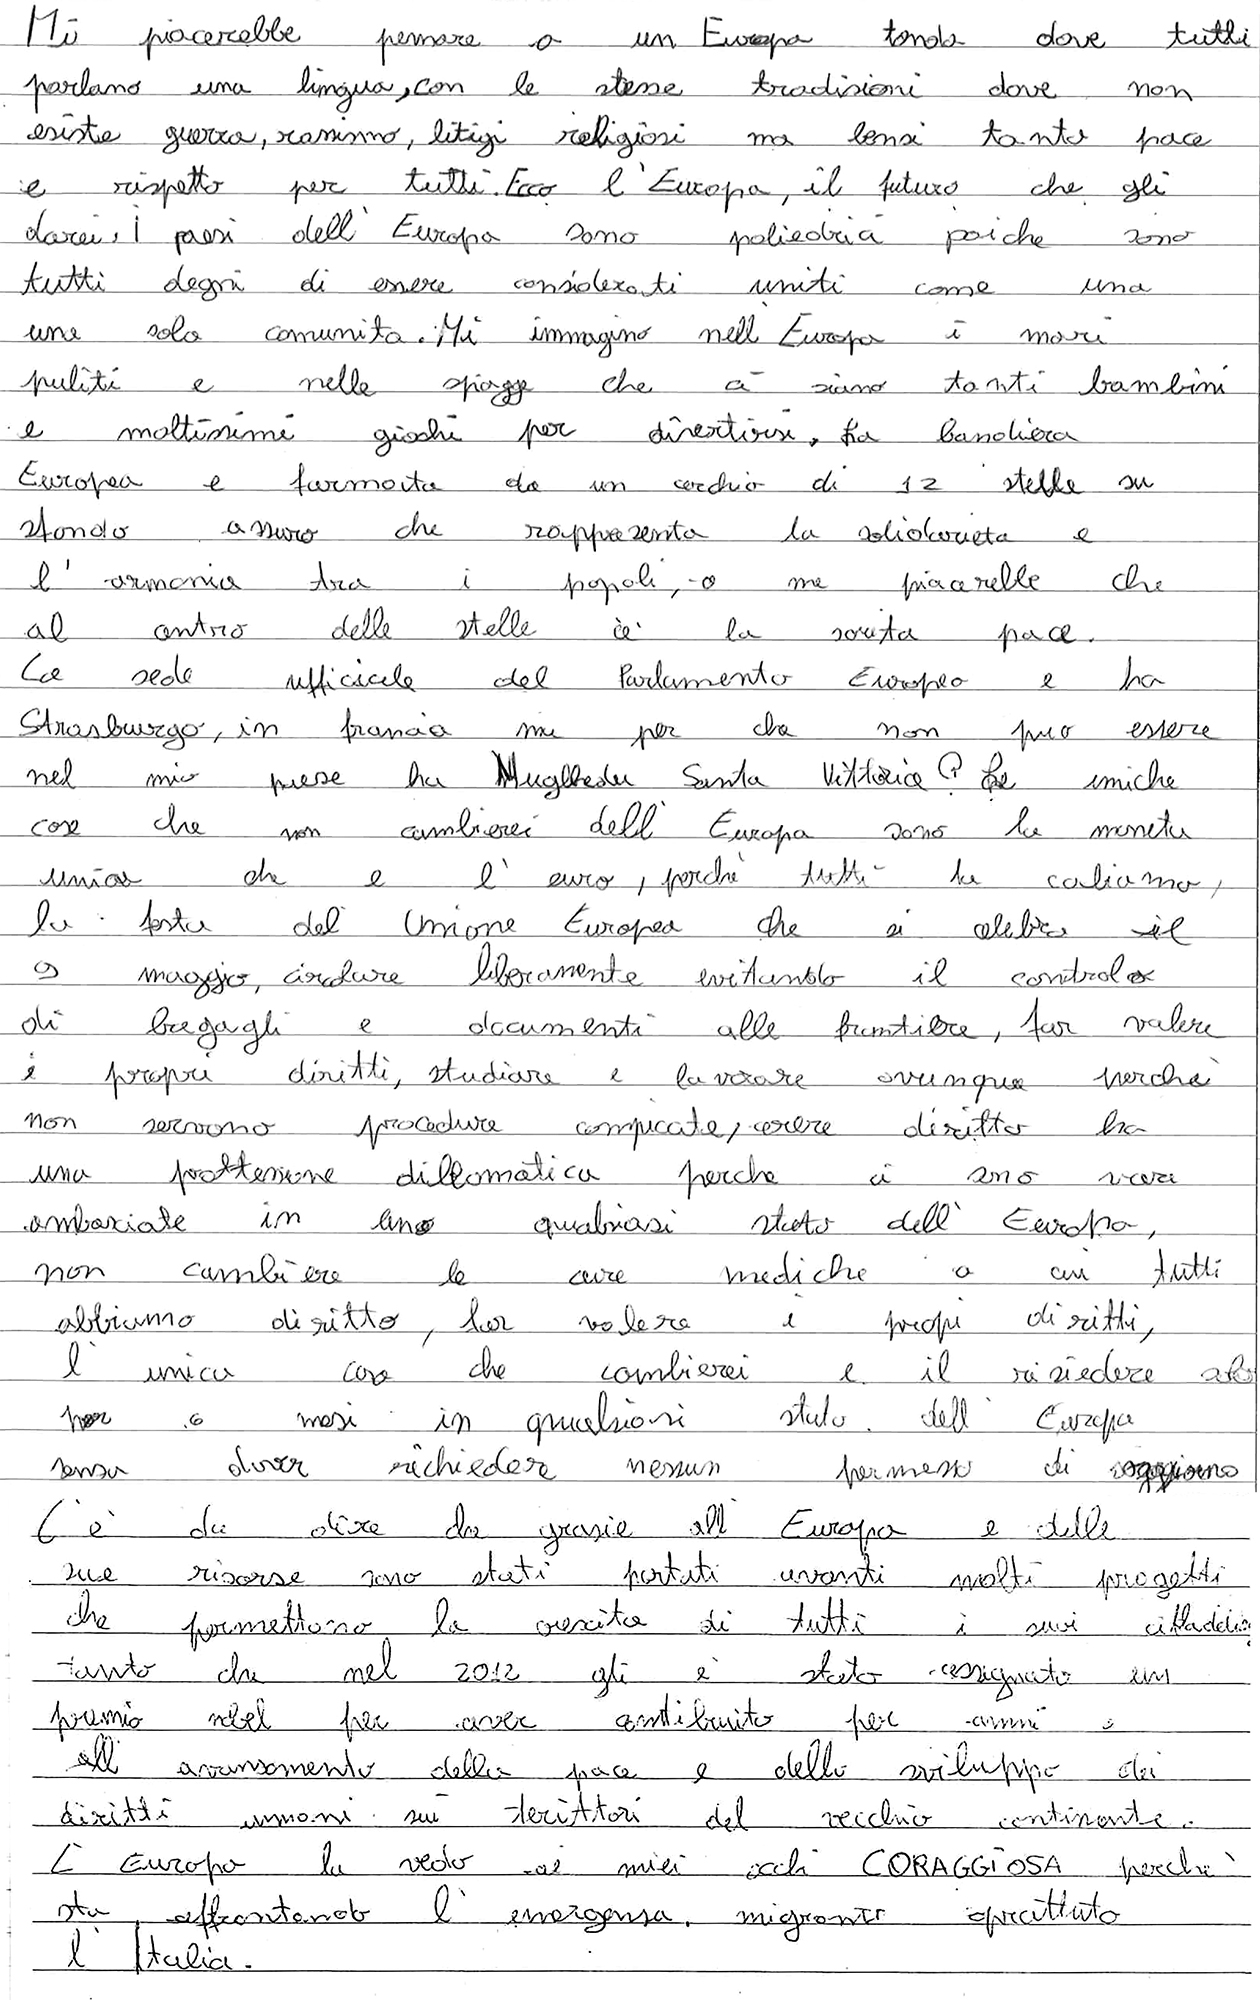 Mi piacerebbe pensare a un Europa tonda dove tutti
parlano una lingua, con le stesse tradisioni dove non
esiste guerra, rassismo, litigi religiosi ma bensi tanto pace
e rispetto per tutti. Ecco l'Europa, il futuro che gli
darei. I paesi dell'Europa sono poliedrici poiche sono
tutti degni di essere considerati uniti come una
una sola comunita. Mi immagino nell Europa i mari
puliti e nelle spiagge che ci siano tanti bambini
e moltissimi giochi per divertirsi. La bandiera
Europea e furmata da un cerchio di 12 stelle su
sfondo assuro che rappresenta la solidarieta e
l'armonia tra i popoli, a me piacerebbe che
al centro delle stelle c'è la scrita pace.
La sede ufficiale del Parlamento Europeo e ha
Strasburgo, in francia ma per che non puo essere
nel mio paese ha Santa Vittoria? Le uniche
cose che non cambierei dell'Europa sono la moneta
unica che e l'euro, perchè tutti la
la festa del Unione Europea che si celebra il
9 maggio, circolare liberamente evitando il controlo
di bagagli e documenti alle fruntiere, far valere
i propri diritti, studiare e lavorare ovunque perchè
non servono procedure compicate, avere diritto ha
una prottessione diplomatica perche ci sono varie
ambasciate in qualsiasi stato dell'Europa,
non cambiere le cure mediche a cui tutti
abbiamo diritto, far valere i propi diritti,
l'unica cosa che cambierei e il risiedere solo
per 6 mesi in qualsiasi stato dell'Europa
sensa dover richiedere nessun permesso di soggiorno
C'è da dire che grasie all'Europa e delle
sue risorse sono stati portati avanti molti progetti
che permettono la crescita di tutti i suoi
tanto che nel 2012 gli è stato assegnato un
premio nobel per aver contribuito per anni
all avansamento della pace e dello sviluppo dei
diritti umani sui teritтori del vecchio continente.
L'Europa la vedo ai miei occhi CORAGGIOSA perchè
sta affrontando l'emergensa migranti sprattuto
l'Italia.